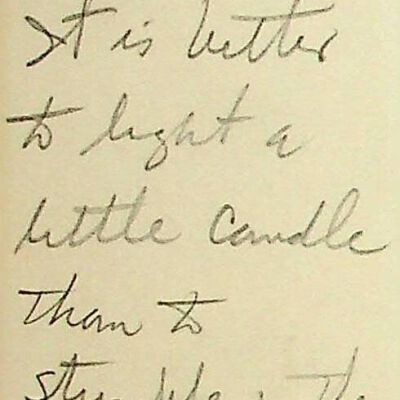 It is better
to light a
little candle
than to